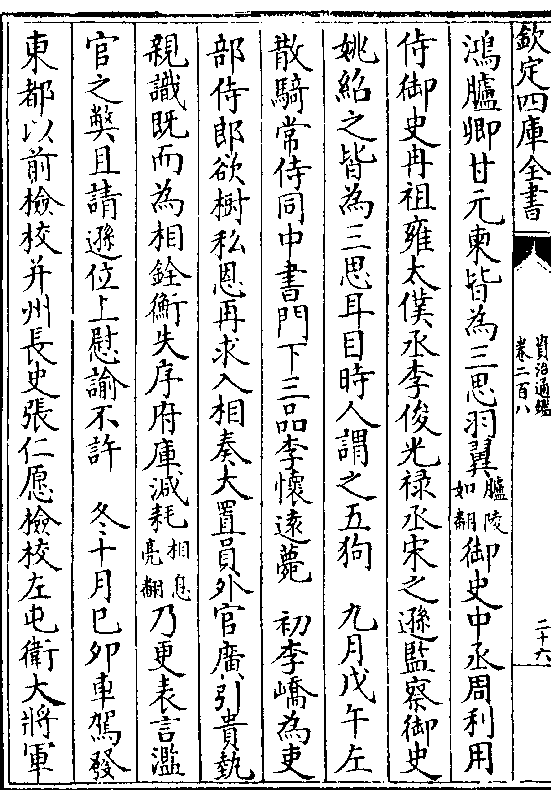 欽定四庫全書
資治通鑑
卷二百八
二十六
鴻臚卿甘元柬皆為三思羽翼臚陵如翻御史中丞周利用
侍御史冉祖雍太僕丞李俊光禄丞宋之遜監察御史
姚紹之皆為三思耳目時人謂之五狗　九月戊午左
散騎常侍同中書門下三品李懷遠薨　初李嶠為吏
部侍郎欲樹私恩再求入相奏大置員外官廣引貴埶
親識既而為相銓衡失序府庫減耗相息亮翻乃更表言濫
官之弊且請遜位上慰諭不許　冬十月巳卯車駕發
東都以前檢校并州長史張仁愿檢校左屯衛大將軍